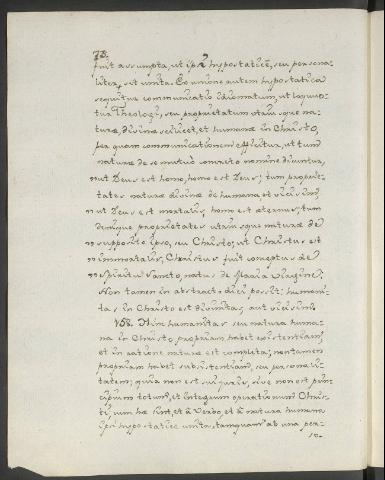 73.
fuit assumpta, ut ipsi hypostaticè, seu persona-
liter sit unita. Ex unione autem hypostatica
sequitur communicatio idiomatum, ut loquun-
tur Theologi, seu proprietatum utriusque na-
turæ, divinæ scilicet, et humanæ in Christo,
per quam communicationem efficitur, ut tum
naturæ de se mutuo concreto nomine dicantur,
" ut Deus est homo, homo est Deus; tum proprie-
tates naturæ divinæ de humana, et vicissim,
" ut Deus est mortalis, homo est æternus; tum
denique proprietates utriusque naturæ de
" supposito ipso, seu Christo, ut Christus est
" immortalis, Christus fuit conceptus de
" Spiritu Sancto, natus de Maria Virgine;
Non tamen in abstracto dici possit: humani-
tas in Christo est divinitas, aut vicissim.
158. Hinc humanitas seu natura huma-
na in Christo propriam habet existentiam,
et in ratione naturæ est completa; non tamen
propriam habet subsistentiam, seu personali-
tatem; quia non est sui juris, sive non est prin-
cipium totum, et integrum operationum Chris-
ti, cum hæ sint, et à Verbo, et à natura humana
ipsi hypostaticè unita, tamquam ab una per-
so-